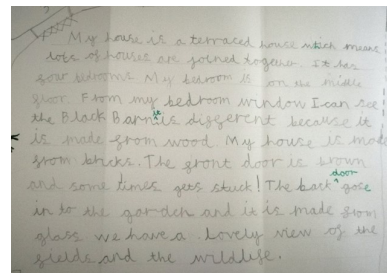 My house is a terraced house which means
lots of houses are joined together. It has
four bedrooms My bedroom is on the middle
floor. From my bedroom window I can see
the Black Barn it is different because it
is made from wood. My house is made
from bricks. The front door is brown
and some times gets stuck! The back door gose
in to the garden and it is made from
glass we have a lovely view of the
fields and the wildlife.